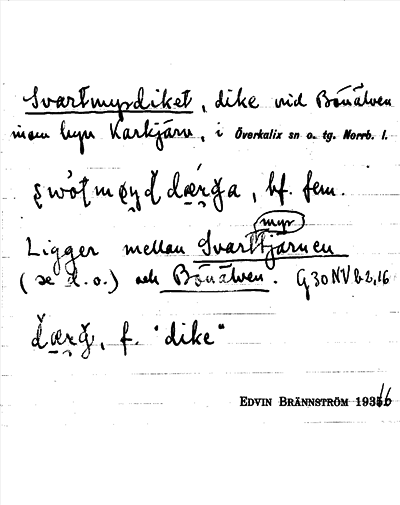 Svartmyrdiket, dike vid Bönälven
inom byn Karkjärv, i Överkalix sn o. tg. Norrb. l.
bf. fem.
myr
Ligger mellan Svarttjärnen
(se d.o.) och Bönälven. G 30 NV b 2,16
f. "dike"
EDVIN BRÄNNSTRÖM 1936